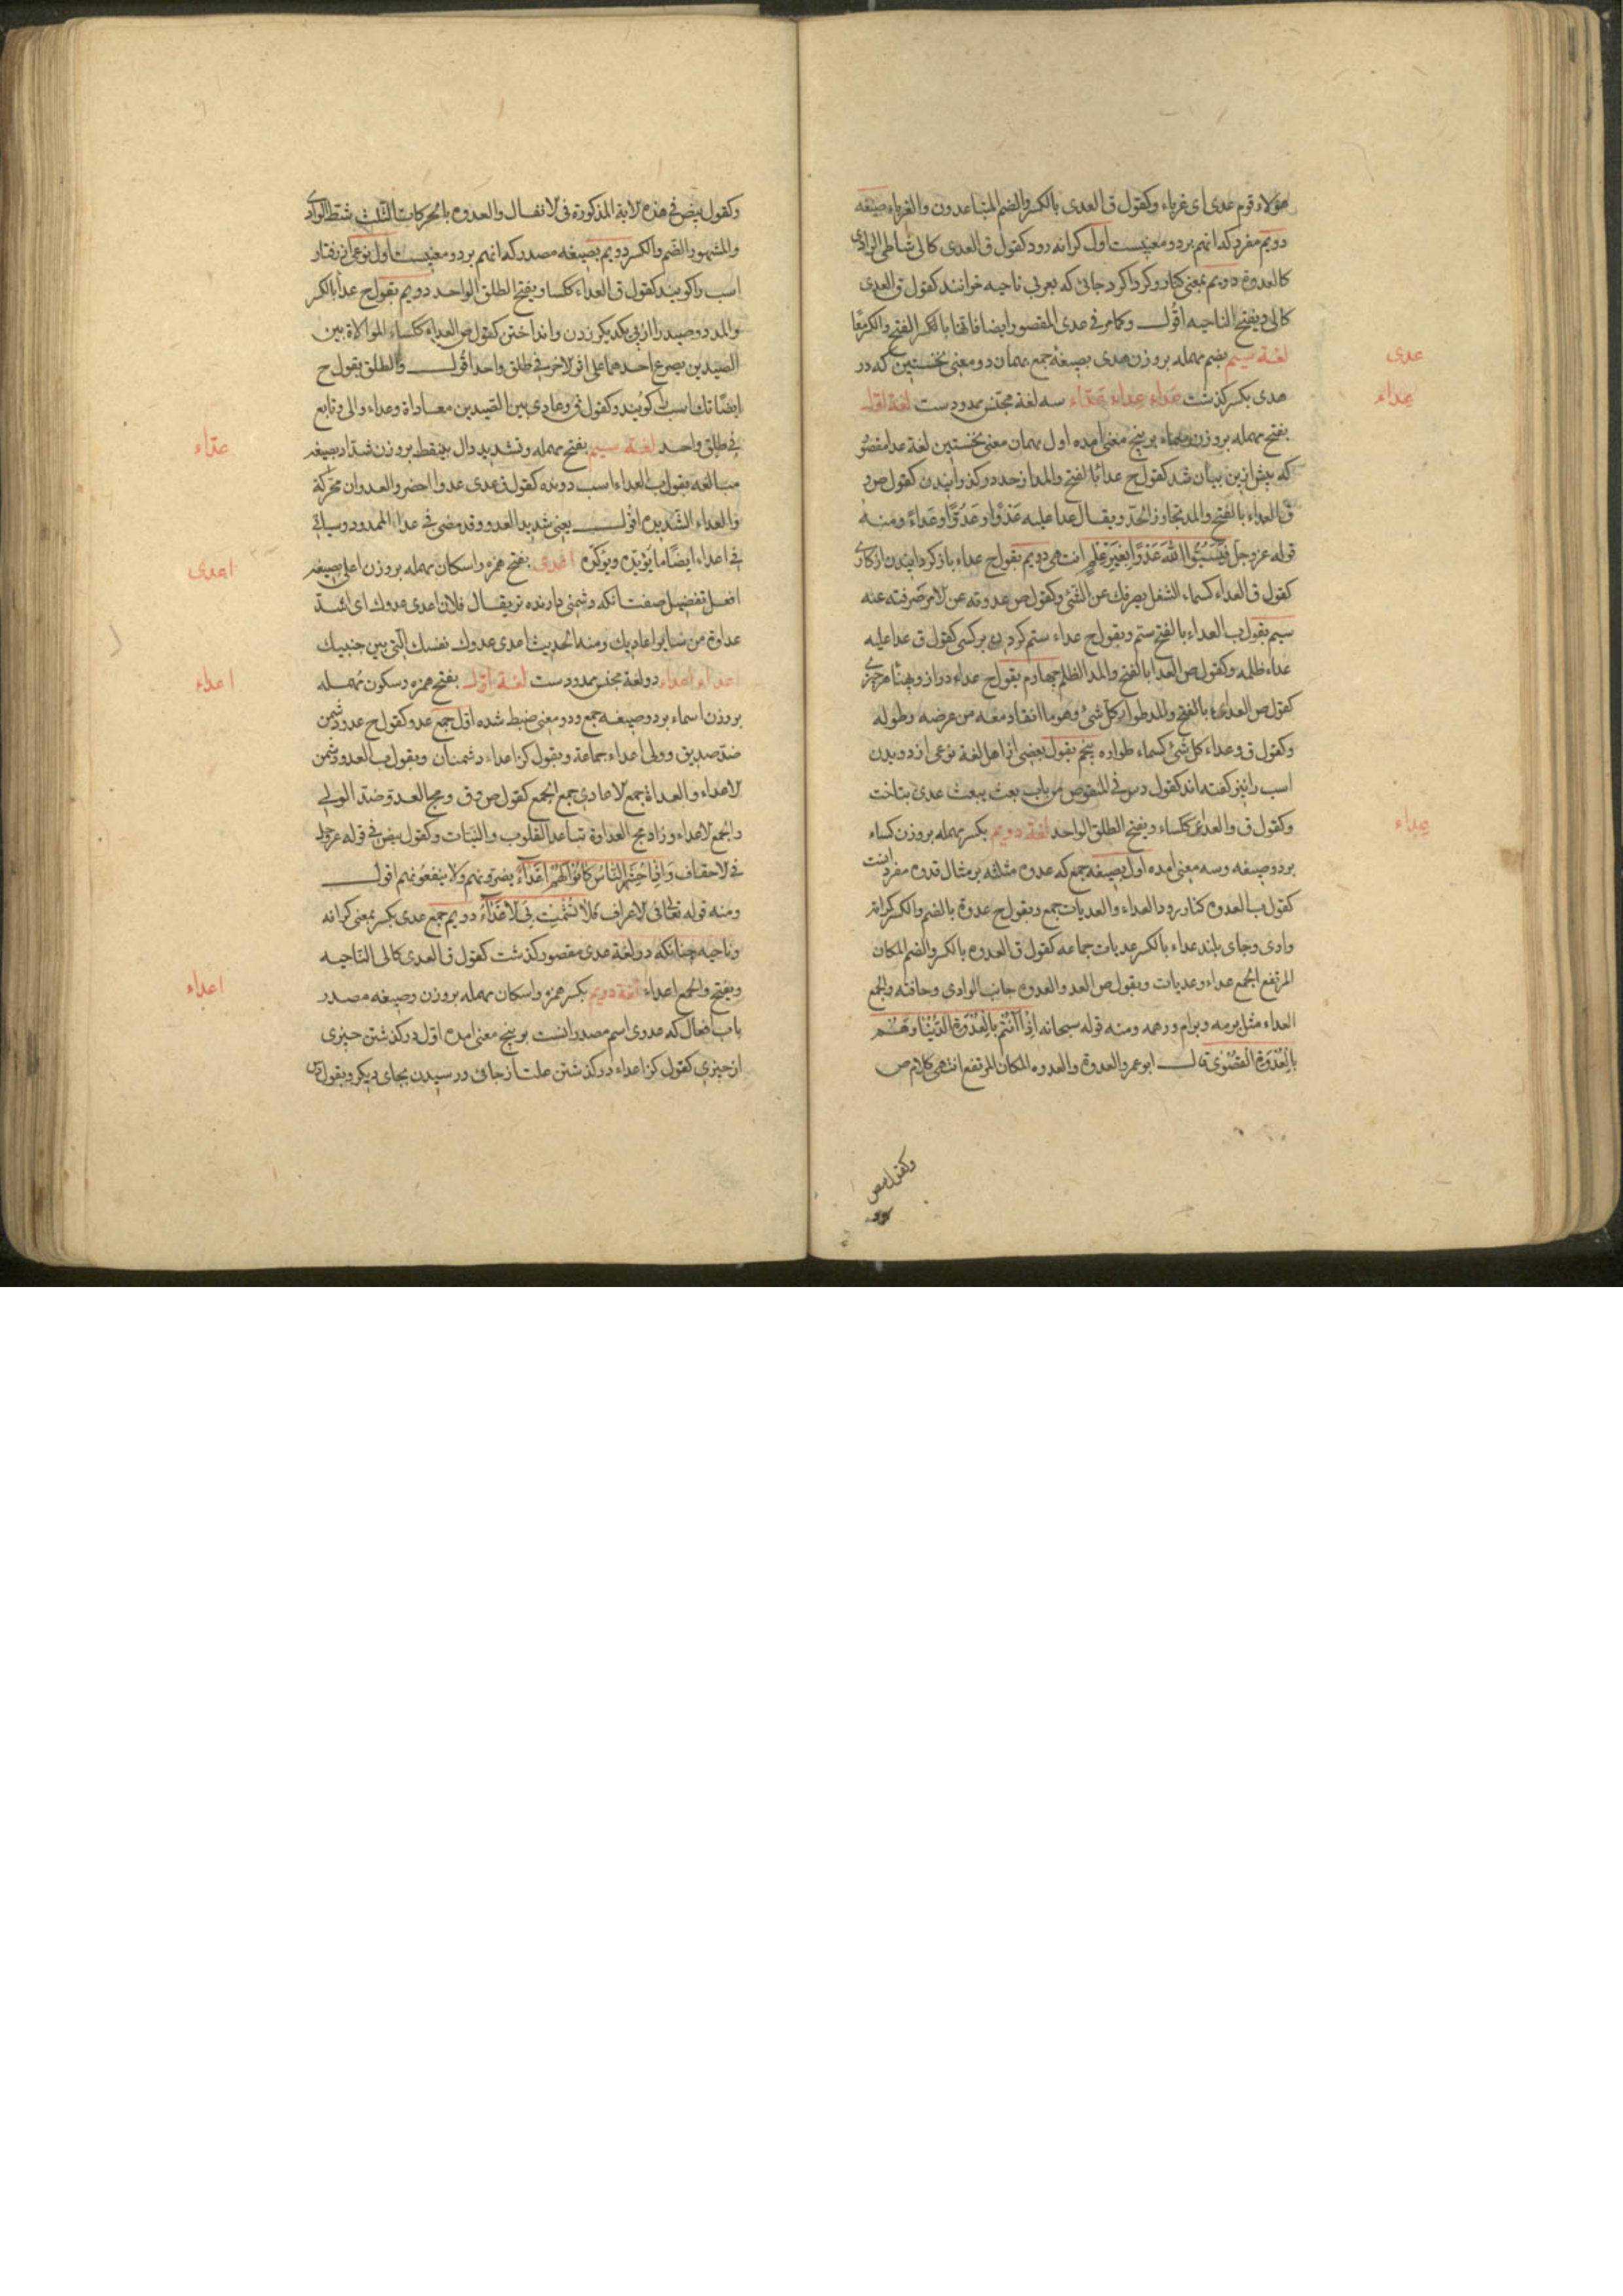 هؤلاء قوم عدی ای غرباء وکقول ق العدی بالکسر والضم المتباعدون والغرباء صیغه
دویم مفرد که انهم بر دو معنیست اول کرانه رود کقول ق العدی کالی شاطی الوادی
کالعدوة دویم بمعنی کنار و کرداکرد جائی که بعربی ناحیه خوانند کقول ق العدی
کالی ویفتح الناحیه اقول وکما مر فی عدی المقصور ایضا فاتها بالکسر الفتح والکسر معًا
عدی
لغة سیم بضم مهمله بر وزن هدی بصیغه جمع بهمان دو معنی نخستین که در
عداء
عدی بکسر کذشت عداء عداء عدّاء سه لغة مجنس ممدودست لغة اول
بفتح مهمله بر وزن سماء بر پنج معنی امده اول بهمان معنی نخستین لغة عدا مقصور
که پیش ازین بیان شد کقول ح عدائًا لفتح والمد از حد در کذرانیدن کقول ص و
ق العداء بالفتح والمد تجاوز الحدّ ویقال عدا علیه عَدْوًا وعُدُوًّا وعَدَاءً ومنه
قوله عز وجل فَيَسُبُّوا اللهَ عَدْوًا بِغَيْرِ عِلْمٍ انتهی دویم بقول ح عداء باز کردانیدن از کاری
کقول ق العداء کسماء الشغل یصرفك عن الشئ وکقول ص عدوته عن لامر صرفته عنه
سیم بقول ب العداء بالفتح ستم وبقول ح عداء ستم کردن بر کسی کقول ق عدا علیه
عداء ظلمه وکقول ص العدا بالفتح والمد الظلم چهارم بقول ح عداء درازا وپهنا هر چیزی
کقول ص العداء بالفتح والمد طوار کل شئ وهو ما انقاد معه من عرضه وطوله
وکقول ق وعداء کل شئ کسماء طواره پنجم بقول بعضی از اهل لغة نوعی از دویدن
اسب را نیز کفته اند کقول دس فی المنقوص من باب بعث یبعث عدی بتاخت
عداء
وکقول ق والعداء ککساء ویفتح الطلق الواحد لغة دویم بکسر مهمله بر وزن کساء
بر دو صیغه وسه معنی امده اول بصیغه جمع که عدوه مثلثه بر مثال قدوه مفرد اینست
کقول ب العدوه کنار رود العداء والعدیات جمع وبقول ح عدوة بالضم والکسر کرانه
وادی وجای بلند عداء بالکسر عدیات جماعه کقول ق العدوه بالکسر والضم المکان
المرتفع الجمع عداء وعدیات وبقول ص العد والعدوه جانب الوادی وحافته والجمع
العداء مثل برمه وبرام ورهمه ومنه قوله سبحانه اِذْ اَنْتُمْ بِالْعُدْوَةِ الدُّنْيَا وَهُمْ
بِالْعُدْوَةِ الْقُصْوٰی قال ابو عمرو العدوة والعدوه المکان المرتفع انتهی کلام ص
وکقول بیض
وکقول بیض فی هذه لایة المذکورة فی لانفال والعدوه بالحرکات الثلث شط الوادی
والمشهور الضم والکسر دویم بصیغه مصدر که انهم بر دو معنیست اول نوعی از رفتار
اسب را کویند کقول ق العداء ککسا ویفتح الطلق الواحد دویم بقول ح عدا بالکسر
والمد دو صید را از پی یکدیکر زدن وانداختن کقول ص العداء ککساء الموالاة بین
الصیدین یصرع احدهما علی اثر لاخر فی طلق واحد اقول والطلق بقول ح
ایضًا تك اسب را کویند وکقول ق وعادی بین الصیدین معاداة وعداء والی وتابع
عدّاء
فی طلق واحد لغة سیم بفتح مهمله وتشدید دال بینقطه بر وزن شداد بصیغه
مبالغه بقول ب العداء اسب دونده کقول ق عدی عدوا احضر والعدوان محرکة
والعداء الشدیده اقول یعنی شدید العدو وقد مضی فی عداء الممدود وسیاتی
اعدی
فی اعداء ایضًا ما یؤیده ویؤکّده اعدی بفتح همزه واسکان مهمله بر وزن اعلی بصیغه
افعل تفضیل صفت انکه دشمنی دارنده تر یقال فلان اعدی عدوك ای اشدّ
عداوة من سایر اعادیك ومنه الحدیث اعدی عدوك نفسك الّتی بین جنبیك
اعداء
اعداء اعداء دو لغة مجنس ممدودست لغة اول بفتح همزه وسکون مهمله
بر وزن اسماء بر دو صیغه جمع ودو معنی ضبط شده اول جمع عدو کقول ح عدو دشمن
ضد صدیق وولی اعداء جماعة وبقول کز اعداء دشمنان وبقول ب العدو دشمن
لاعداء والعداة جمع لاعادی جمع الجمع کقول ص وق ومج العدو ضد الولی
والجمع لاعداء وزاد مج العداوة تباعد القلوب والنیات وکقول بیض فی قوله عز وجل
فی لاحقاف وَاِذَا حُشِرَ النَّاسُ كَانُوا لَهُمْ اَعْدَاءً یضرونهم ولا ینفعونهم اقول
ومنه قوله تعالی فی لاعراف فَلَا تُشْمِتْ بِیَ لْاَعْدَاءَ دویم جمع عدی بکسر بمعنی کرانه
وناحیه چنانکه در لغة عدی مقصور کذشت کقول ق العدی کالی الناحیه
اعداء
ویفتح والجمع اعداء لغة دویم بکسر همزه واسکان مهمله بر وزن وصیغه مصدر
باب افعال که عدوی اسم مصدر انست بر پنج معنی امده اول در کذشتن چیزی
از چیزی کقول کز اعداء در کذشتن علت از جائی ورسیدن بجای دیکر وبقول